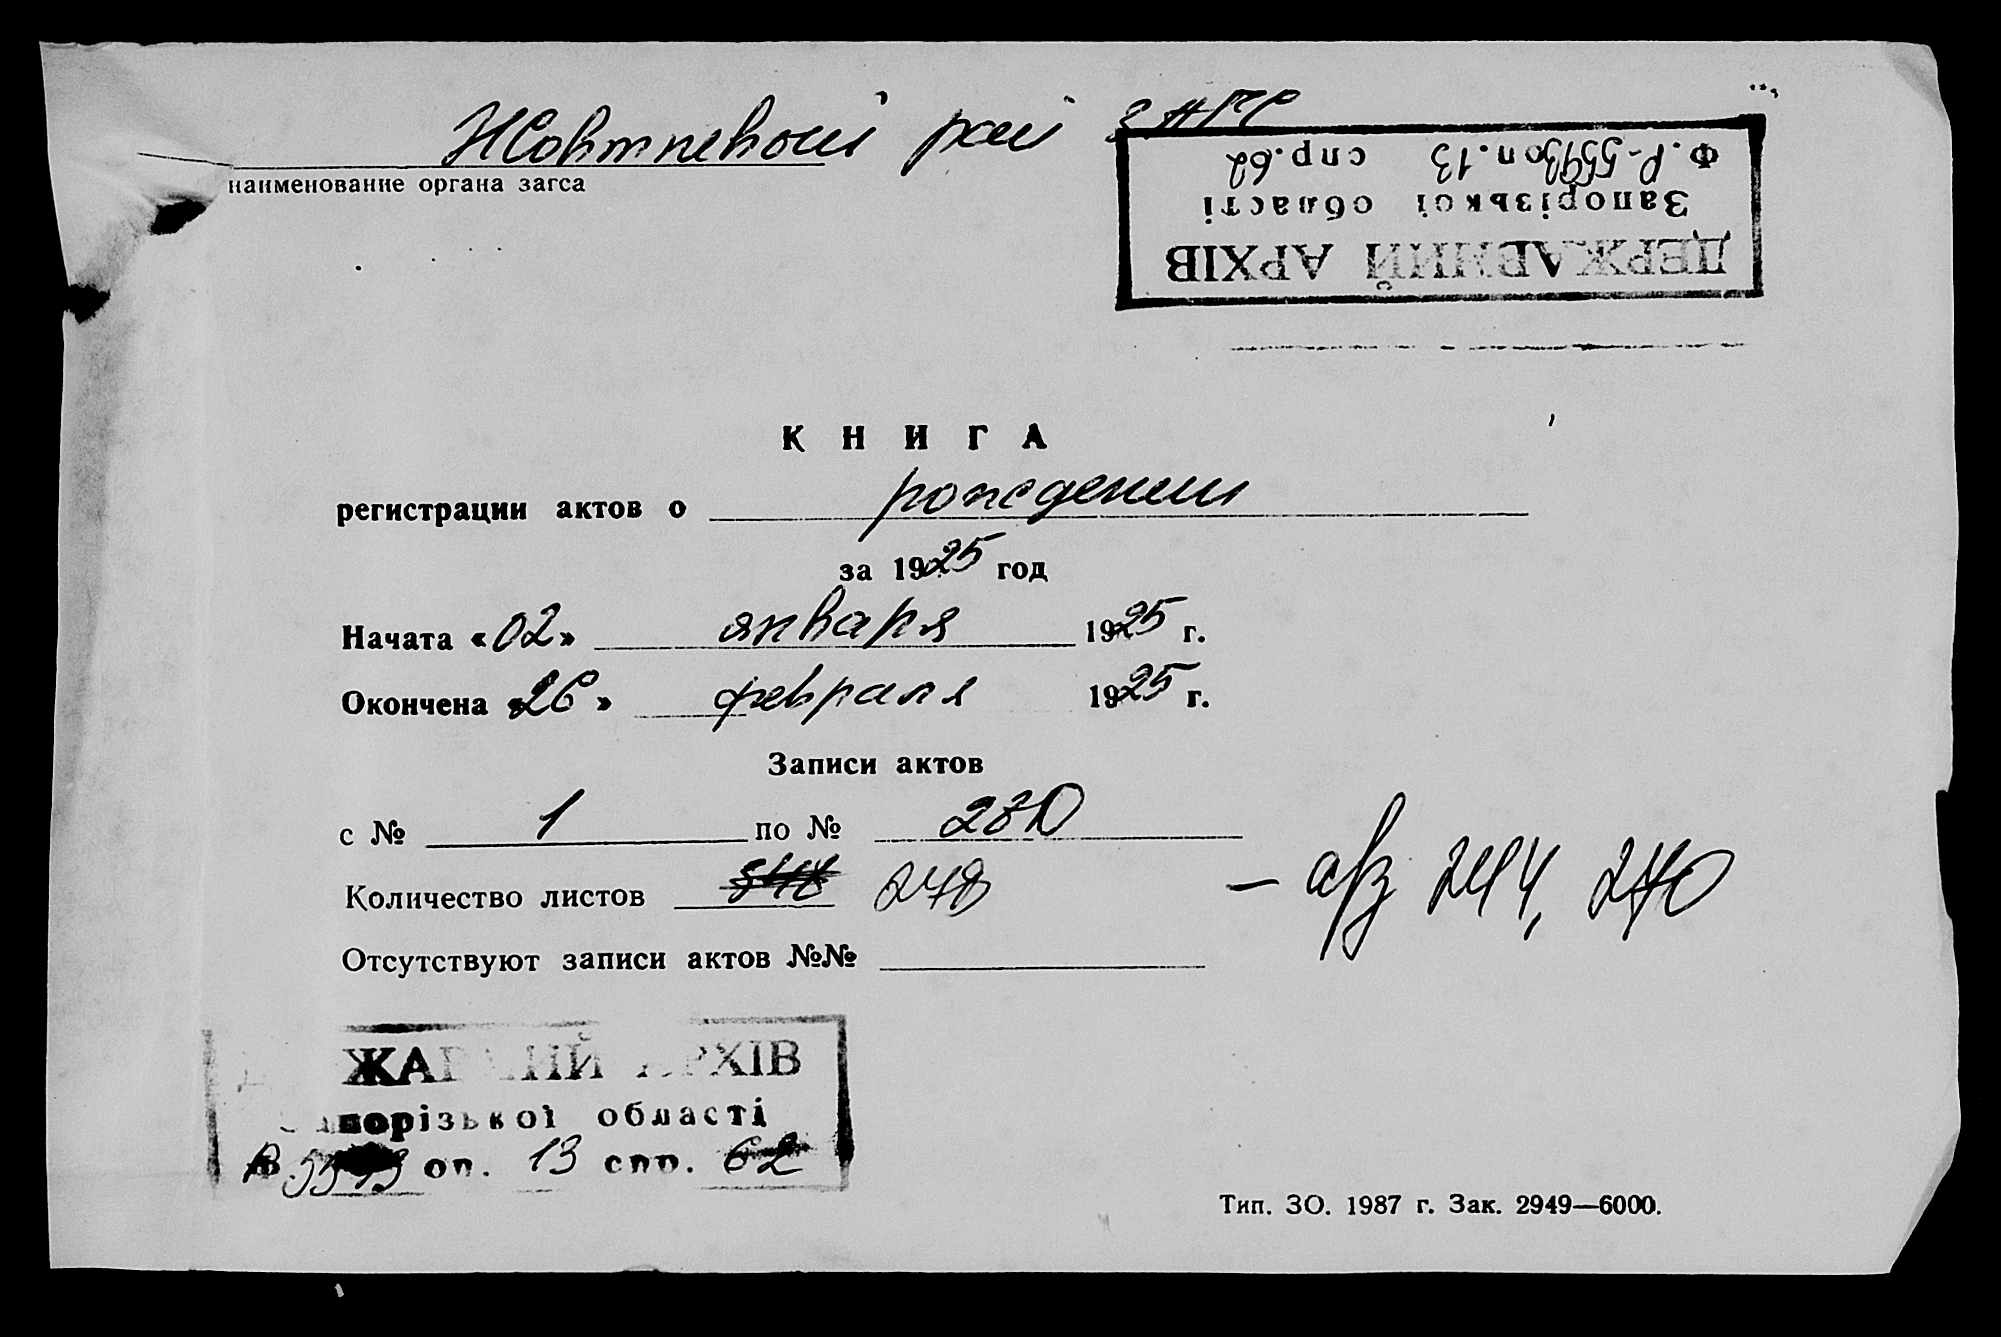 Жовтневый рай ЗАГС
наименование органа загса
Ф. Р-5593 оп. 13 спр. 62
Запорізької області
ДЕРЖАВНИЙ АРХІВ
КНИГА
регистрации актов о рождении
за 1925 год
Начата «02» января 1925 г.
Окончена «26» февраля 1925 г.
Записи актов
с № 1 по № 280
Количество листов 278 — а/з 244, 270
Отсутствуют записи актов №№
ДЕРЖАВНИЙ АРХІВ
Запорізької області
Р 5593 оп. 13 спр. 62
Тип. ЗО. 1987 г. Зак. 2949—6000.